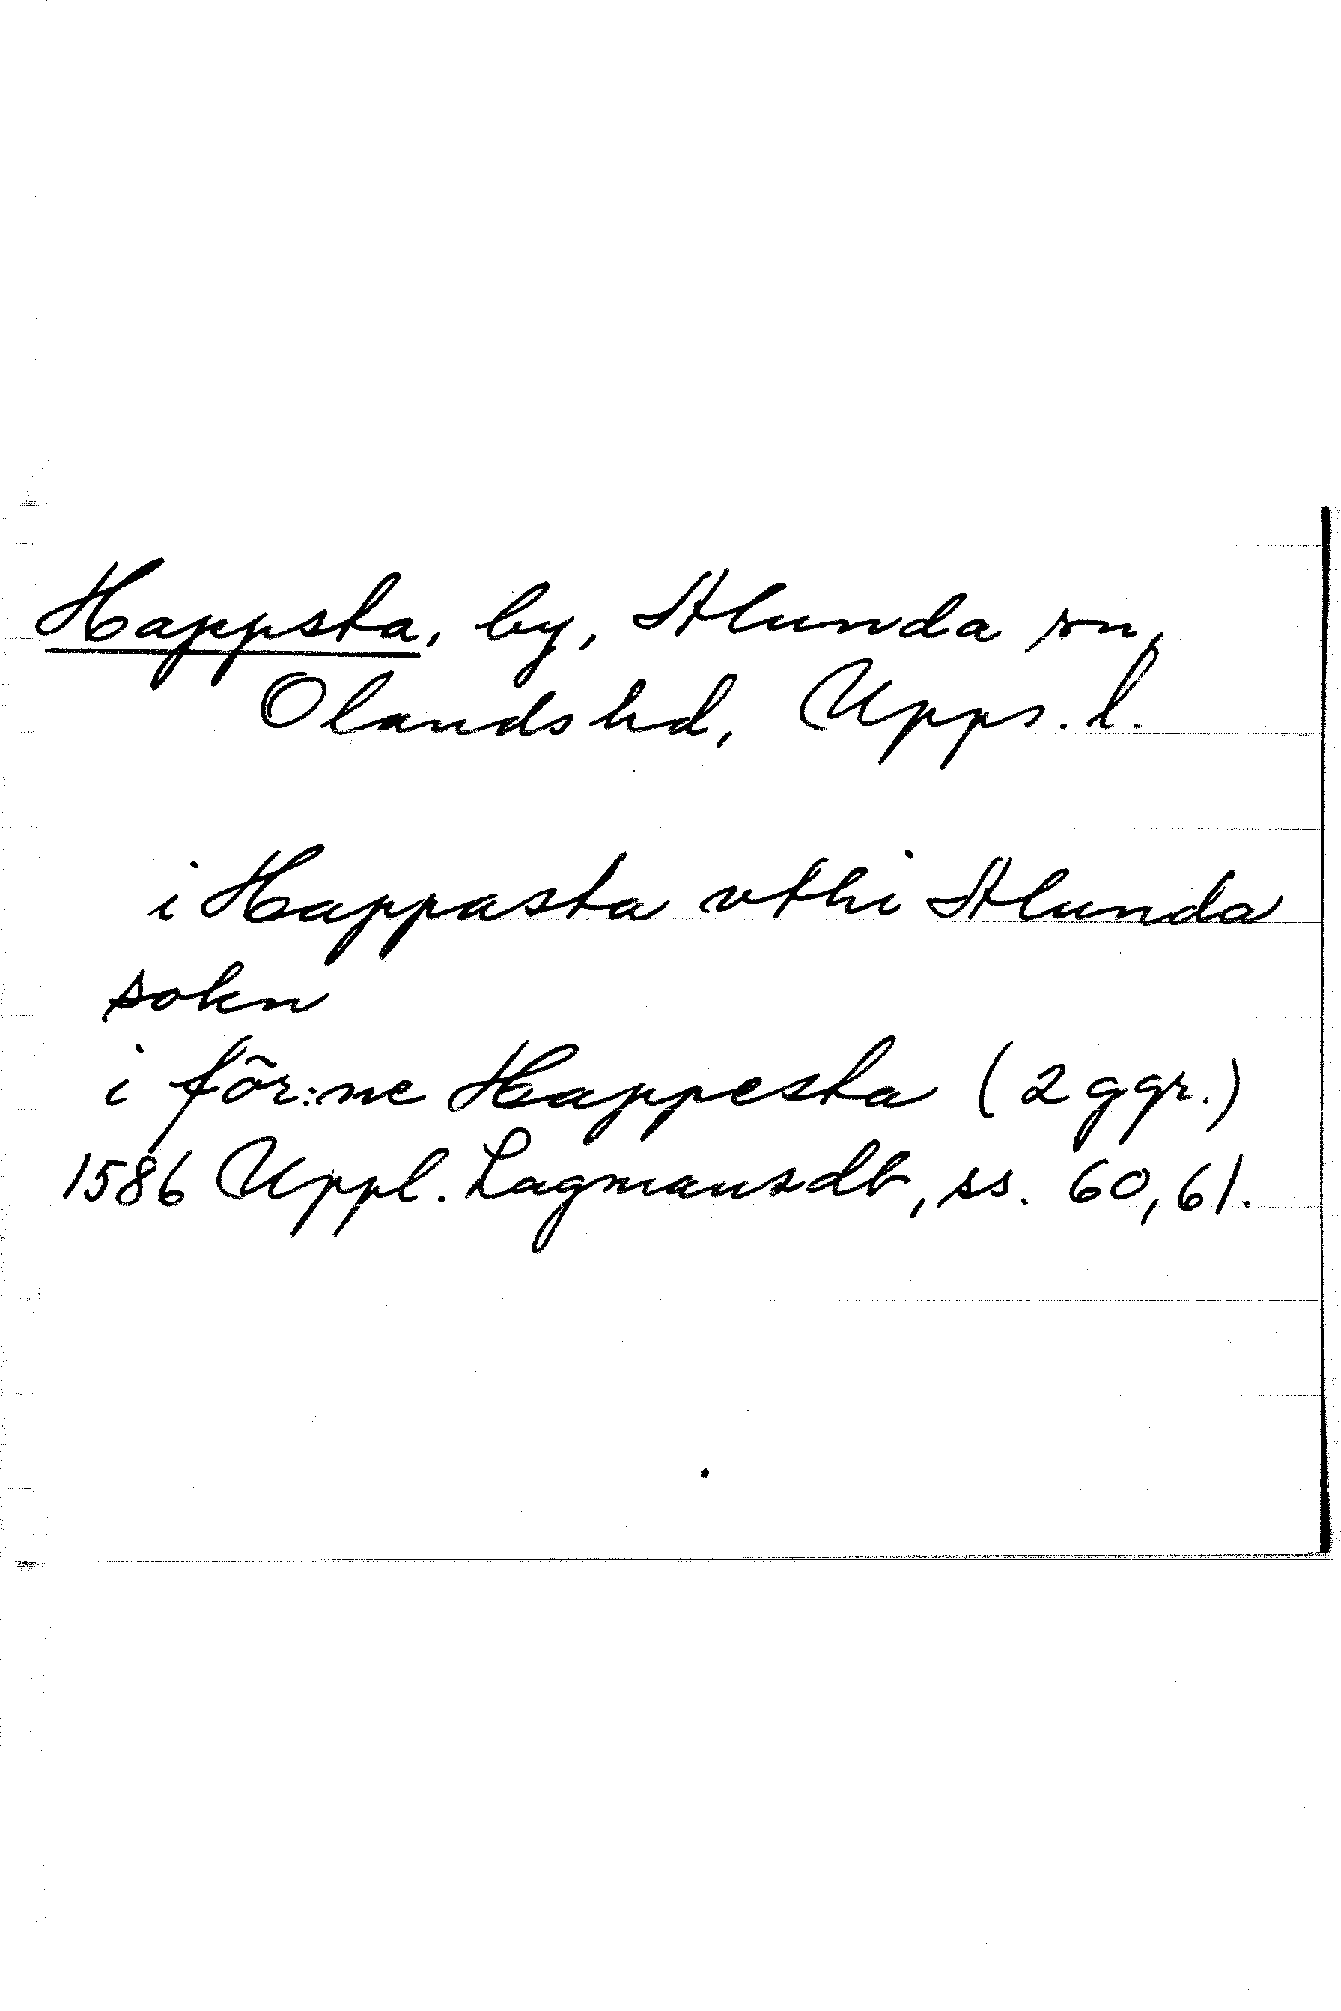 Happsta, by, Alunda sn,
Olandshd, Upps. l.
i Happasta vthi Alunda
sokn
i för:ne Happesta (2 ggr.)
1586 Uppl. Lagmansdb, ss. 60, 61.